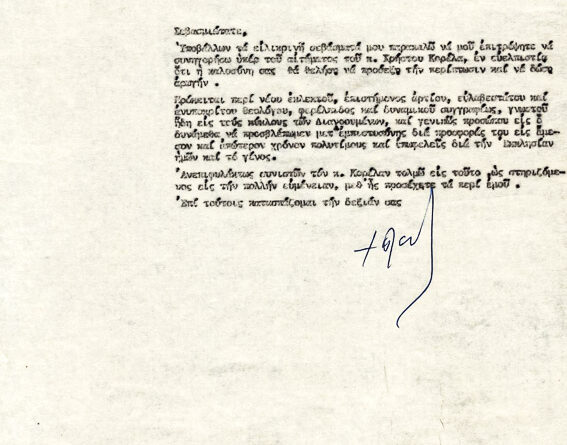 Σεβασμιώτατε,
Ὑποβάλλων τά εἰλικρινῆ σεβάσματά μου παρακαλῶ νά μοῦ ἐπιτρέψητε νά
συνηγορήσω ὑπέρ τοῦ αἰτήματος τοῦ κ. Χρήστου Κορέλα, ἐν εὐελπιστίᾳ
ὅτι ἡ καλοσύνη σας θά θελήσῃ νά προσέξῃ τήν περίπτωσιν καί νά δώσῃ
ἀρωγήν .
Πρόκειται περί νέου ἐκλεκτοῦ, ἐπιστήμονος ἀρτίου, εὐλαβεστάτου καί
ἀνυποκρίτου θεολόγου, φερέλπιδος καί δυναμικοῦ συγγραφέως, γνωστοῦ
ἤδη εἰς τούς κύκλους τῶν Διαγρουμένων, καί γενικῶς προσώπου εἰς ὅ
δυνάμεθα νά προσβλέπωμεν μετ' ἐμπιστοσύνης διά προσφοράς του εἰς ἄμε-
σον καί ἀπώτερον χρόνον πολυτίμους καί ἐπωφελεῖς διά τήν Ἐκκλησίαν
ἡμῶν καί τό γένος.
Ἀνεπιφυλάκτως συνιστῶν τόν κ. Κορέλαν τολμῶ εἰς τοῦτο ὡς στηριζόμε-
νος εἰς τήν πολλήν εὐμένειαν, μεθ' ἧς προσέχετε τά περί ἐμοῦ .
Ἐπί τούτοις κατασπάζομαι τήν δεξιάν σας